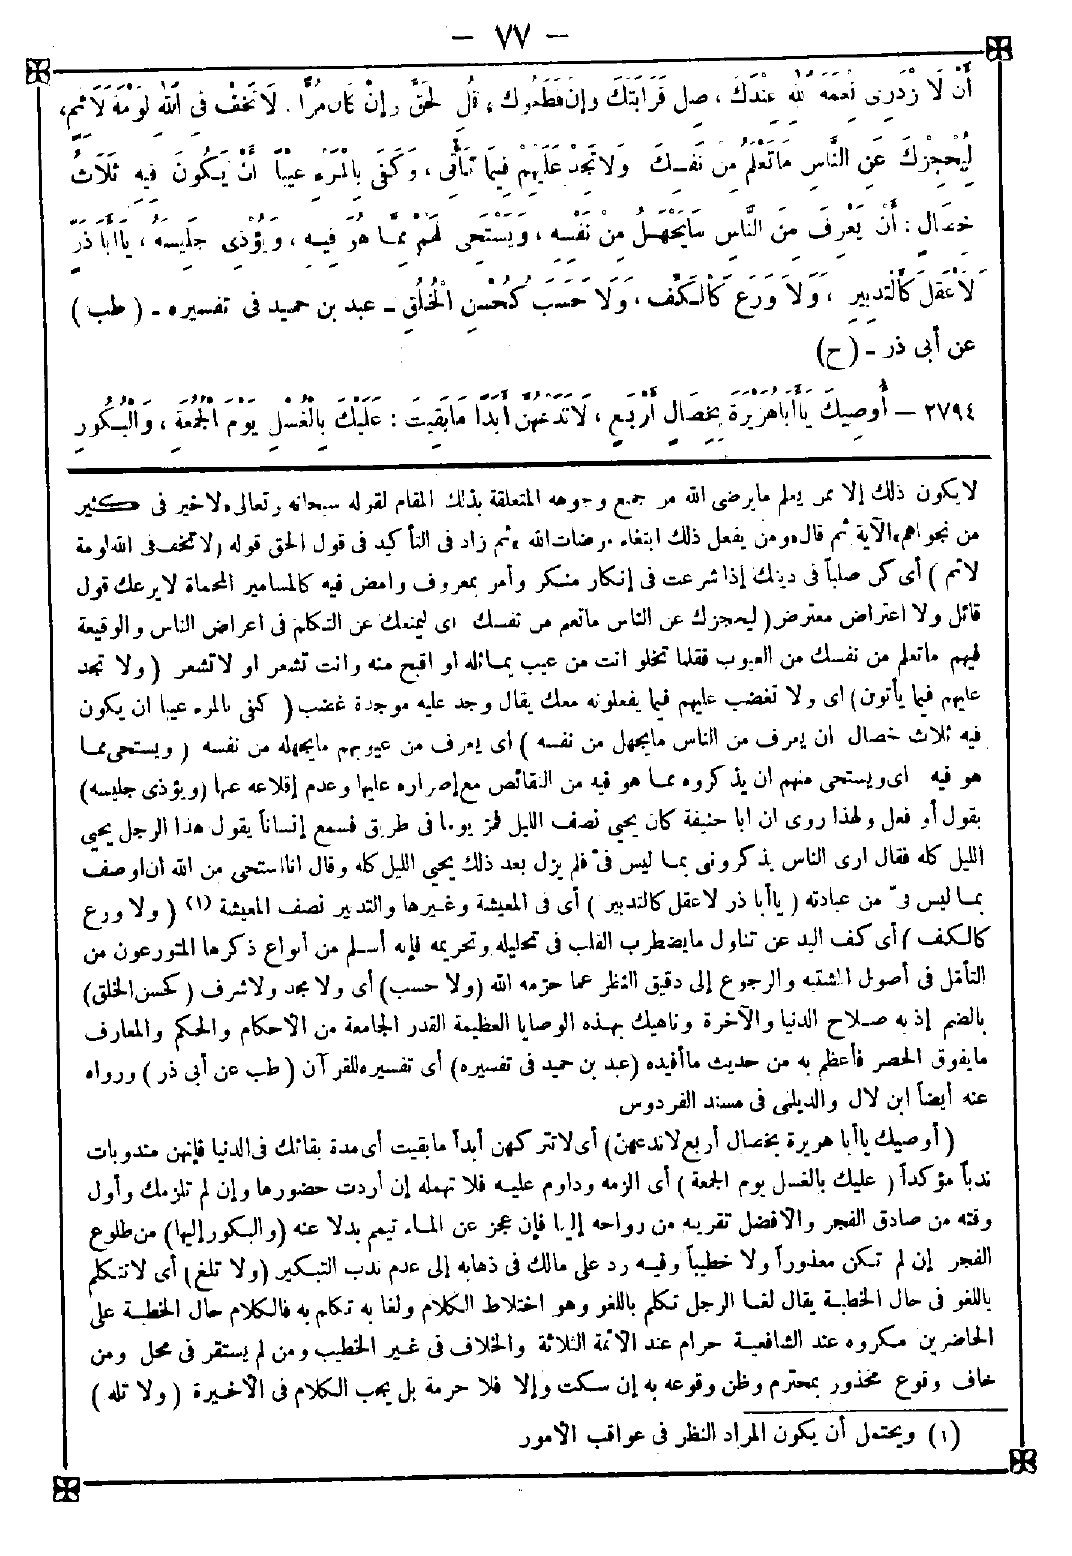 - ٧٧ -
أَنْ لَا تَزْدَرِى نِعْمَةَ اللهِ عِنْدَكَ ، صِلْ قَرَابَتَكَ وإن قَطَعُوك ، قُلِ الحَقَّ وإنْ كَانَ مُرًّا . لَا تَخَفْ فِى اللهِ لَوْمَةَ لَائِمٍ ،
لِيَحْجِزْكَ عَنِ النَّاسِ مَا تَعْلَمُ مِنْ نَفْسِكَ وَلَا تَجِدْ عَلَيْهِمْ فِيمَا تَأْتِى ، وَكَفَى بِالْمَرْءِ عَيْبًا أَنْ يَكُونَ فِيهِ ثَلَاثُ
خِصَالٍ : أَنْ يَعْرِفَ مِنَ النَّاسِ مَا يَجْهَلُ مِنْ نَفْسِهِ ، وَيَسْتَحْيِى لَهُمْ مِمَّا هُوَ فِيهِ ، وَيُؤْذِى جَلِيسَهُ ، يَا أَبَا ذَرٍّ
لَا عَقْلَ كَالتَّدْبِيرِ ، وَلَا وَرَعَ كَالْكَفِّ ، وَلَا حَسَبَ كَحُسْنِ الْخُلُقِ - عبد بن حميد فى تفسيره - ( طب )
عن أبى ذر - (ح)
٢٧٩٤ - أُوصِيكَ يَا أَبَا هُرَيْرَةَ بِخِصَالٍ أَرْبَعٍ ، لَا تَدَعْهُنَّ أَبَدًا مَا بَقِيتَ : عَلَيْكَ بِالْغُسْلِ يَوْمَ الْجُمُعَةِ ، وَالْبُكُورِ
لايكون ذلك إلا ممر يعلم مايرضى الله من جميع وجوهه المتعلقة بذلك المقام لقوله سبحانه وتعالى «لاخير فى كثير
من نجواهم» الآية ثم قال «ومن يفعل ذلك ابتغاء مرضات الله» ثم زاد فى التأكيد فى قول الحق قوله (لاتخف فى الله لومة
لائم ) أى كن صلباً فى دينك إذا شرعت فى إنكار منكر وأمر بمعروف وامض فيه كالمسامير المحماة لا يرعك قول
قائل ولا اعتراض معترض ( ليحجزك عن الناس ماتعلم من نفسك اى ليمنعك عن التكلم فى اعراض الناس والوقيعة
فيهم ماتعلم من نفسك من العيوب فقلما تخلو انت من عيب يماثله او اقبح منه وانت تشعر او لاتشعر ( ولا تجد
عليهم فيما يأتون) اى ولا تغضب عليهم فيما يفعلونه معك يقال وجد عليه موجدة غضب ( كفى بالمرء عيبا ان يكون
فيه ثلاث خصال ان يعرف من الناس مايجهل من نفسه ) اى يعرف من عيوبهم مايجهله من نفسه ( ويستحى مما
هو فيه اى ويستحى منهم ان يذكروه بما هو فيه من النقائص مع إصراره عليها وعدم إقلاعه عنها (ويؤذى جليسه)
بقول أو فعل ولهذا روى ان ابا حنيفة كان يحيى نصف الليل فمر يوما فى طريق فسمع إنساناً يقول هذا الرجل يحيى
الليل كله فقال ارى الناس يذكرونى بما ليس فىّ فلم يزل بعد ذلك يحيى الليل كله وقال انا استحى من الله أن اوصف
بما ليس فىّ من عبادته ( ياأبا ذر لاعقل كالتدبير ) أى فى المعيشة وغيرها والتدبير نصف المعيشة (١) ( ولا ورع
كالكف ) أى كف اليد عن تناول مايضطرب القلب فى تحليله وتحريمه فإنه أسلم من أنواع ذكرها المتورعون من
التأمل فى أصول المشتبه والرجوع إلى دقيق النظر عما حرمه الله (ولا حسب) أى ولا مجد ولاشرف ( كحسن الخلق)
بالضم إذ به صلاح الدنيا والآخرة وناهيك بهذه الوصايا العظيمة القدر الجامعة من الاحكام والحكم والمعارف
مايفوق الحصر فأعظم به من حديث ماأفيده (عبد بن حميد فى تفسيره) أى تفسيره للقرآن ( طب عن أبى ذر ) ورواه
عنه أيضاً ابن لال والديلمى فى مسند الفردوس
( أوصيك ياأبا هريرة بخصال أربع لاتدعهن) أى لاتتركهن أبداً مابقيت أى مدة بقائك فى الدنيا فإنهن مندوبات
ندباً مؤكداً ( عليك بالغسل يوم الجمعة ) أى الزمه وداوم عليه فلا تهمله إن أردت حضورها وإن لم تلزمك وأول
وقته من صادق الفجر والافضل تقريبه من رواحه إليها فإن عجز عن الماء تيمم بدلا عنه (والبكور إليها) من طلوع
الفجر إن لم تكن معذوراً ولا خطيباً وفيه رد على مالك فى ذهابه إلى عدم ندب التبكير (ولا تلغ) أى لاتتكلم
باللغو فى حال الخطبة يقال لغا الرجل تكلم باللغو وهو اختلاط الكلام ولغا به تكلم به فالكلام حال الخطبة على
الحاضرين مكروه عند الشافعية حرام عند الأئمة الثلاثة والخلاف فى غير الخطيب ومن لم يستقر فى محل ومن
خاف وقوع محذور بمحترم وظن وقوعه به إن سكت وإلا فلا حرمة بل يجب الكلام فى الأخيرة ( ولا تله )
(١) ويحتمل أن يكون المراد النظر فى عواقب الأمور